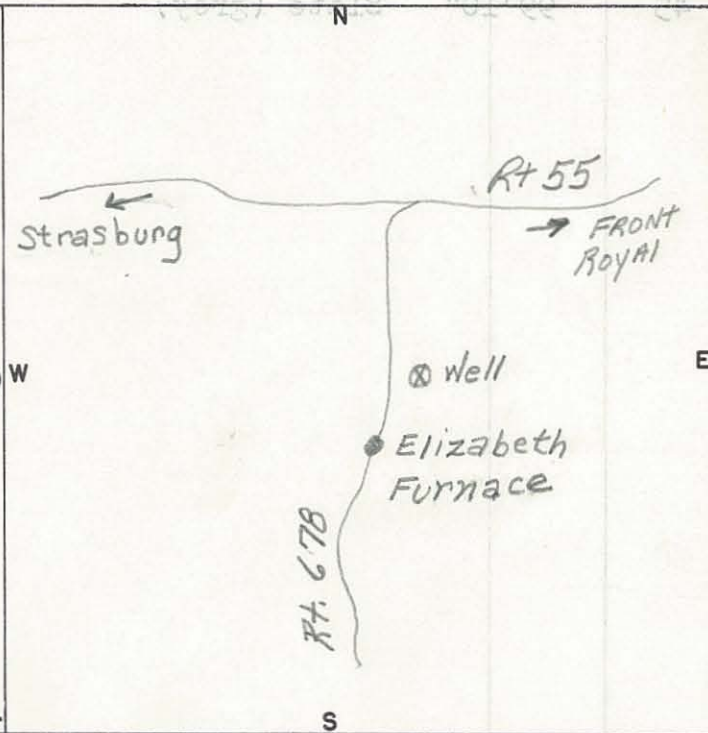 N
Rt 55
Strasburg
FRONT
ROYAl
W
E
Well
Elizabeth
Furnace
Rt. 678
S